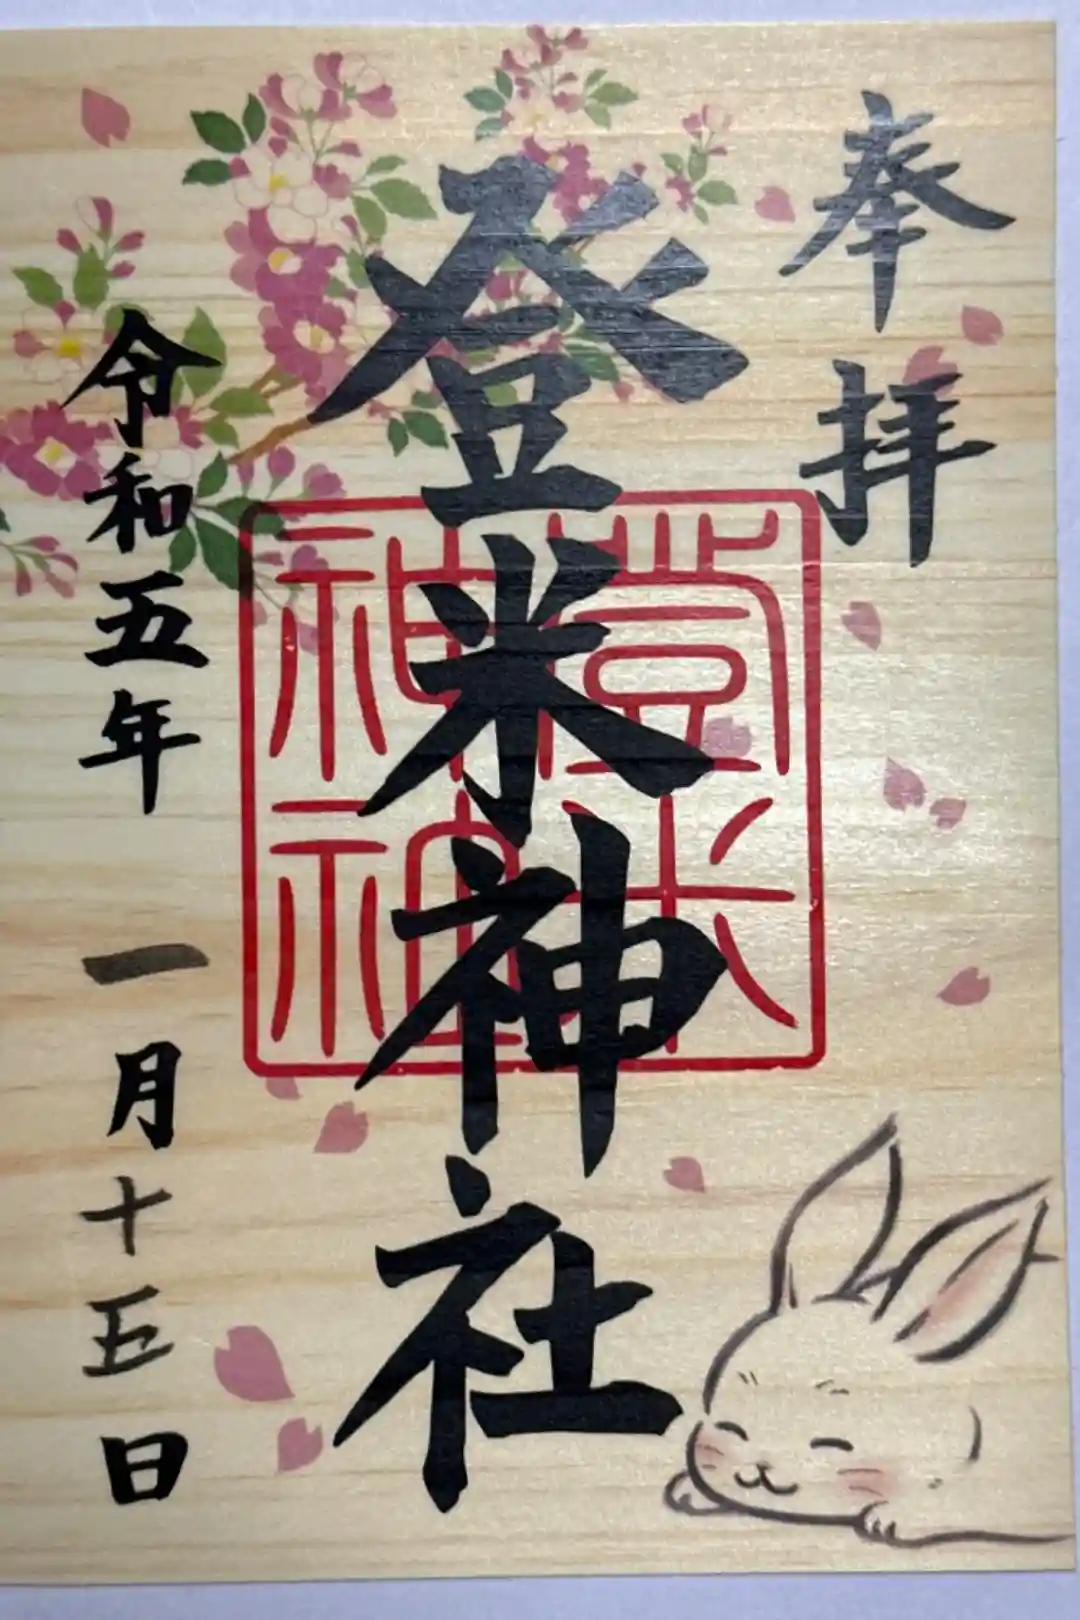 奉拝
登米神社
登米
神社
令和五年 一月十五日